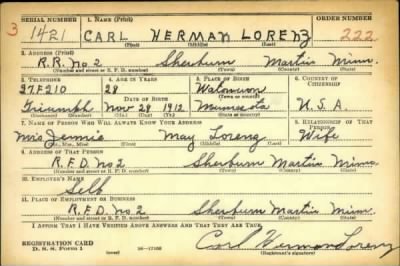 SERIAL NUMBER 1. NAME (Print) ORDER NUMBER
3 1421 CARL HERMAN LORENZ 222
(First) (Middle) (Last)
2. ADDRESS (Print)
R.R. No 2 Sherburn Martin Minn.
(Number and street or R. F. D. number) (Town) (County) (State)
3. TELEPHONE 4. AGE IN YEARS 5. PLACE OF BIRTH 6. COUNTRY OF CITIZENSHIP
27F210 28
DATE OF BIRTH (Town or county)
Triumph Nov 28 1912 Minnesota U.S.A
(Exchange) (Mo.) (Day) (Yr.) (State or country)
7. NAME OF PERSON WHO WILL ALWAYS KNOW YOUR ADDRESS 8. RELATIONSHIP OF THAT PERSON
Mrs Jennie May Lorenz Wife
(Mr., Mrs., Miss) (First) (Middle) (Last)
9. ADDRESS OF THAT PERSON
R.F.D. No 2 Sherburn Martin Minn
(Number and street or R. F. D. number) (Town) (County) (State)
10. EMPLOYER'S NAME
Self
11. PLACE OF EMPLOYMENT OR BUSINESS
R.F.D. No 2 Sherburn Martin Minn
(Number and street or R. F. D. number) (Town) (County) (State)
I AFFIRM THAT I HAVE VERIFIED ABOVE ANSWERS AND THAT THEY ARE TRUE.
REGISTRATION CARD
D. S. S. Form 1 (over) 16-17105 Carl Herman Lorenz
(Registrant's signature)